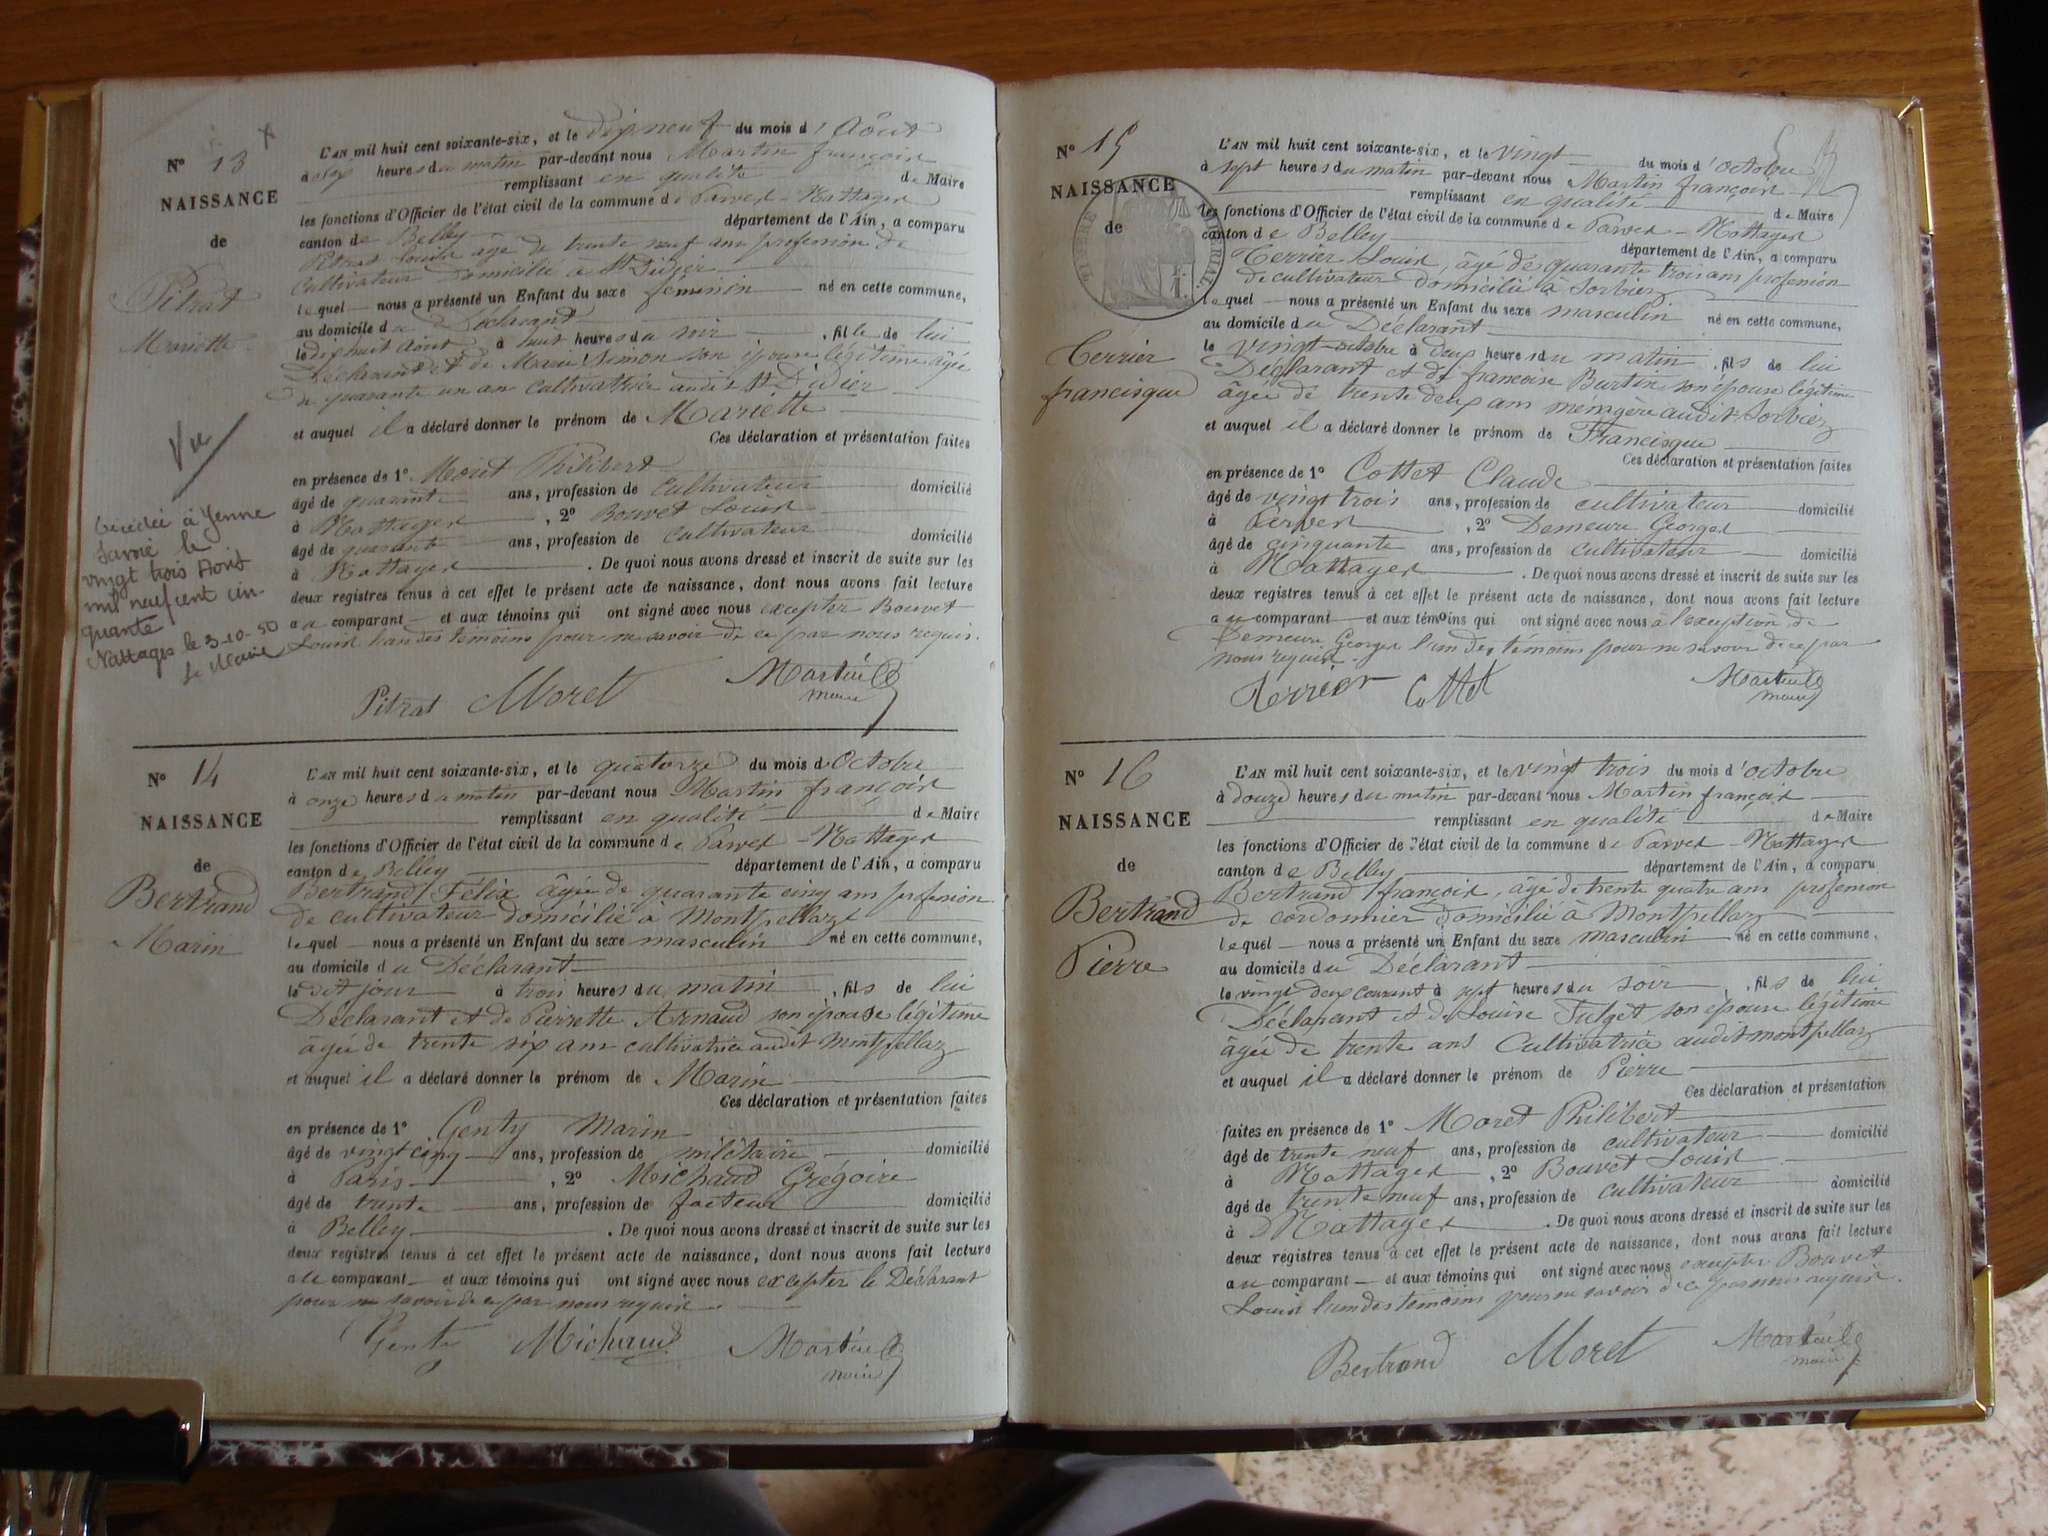 N° 13
NAISSANCE
de
Pitrat
Mariette
Vu
Décédée à Yenne
Savoie le
vingt trois Août
mil neuf cent cin-
quante
Nattages le 3-10-50
Le Maire
L'AN mil huit cent soixante-six, et le dix neuf du mois d'Août
à dix heures du matin par-devant nous Martin françois
remplissant en qualité de Maire
les fonctions d'Officier de l'état civil de la commune de Parves-Nattages
canton de Belley département de l'Ain, a comparu
Pitrat Louis âgé de trente neuf ans profession de
Cultivateur domicilié à St Didier
lequel nous a présenté un Enfant du sexe féminin né en cette commune,
au domicile du Déclarant
le dix huit Août à huit heures du soir, fille de lui
Déclarant et de Marie Simon son épouse légitime âgée
de quarante un an Cultivatrice audit St Didier
et auquel il a déclaré donner le prénom de Mariette
Ces déclaration et présentation faites
en présence de 1° Moret Philibert
âgé de quarante ans, profession de cultivateur domicilié
à Nattages, 2° Bouvet Louis
âgé de quarante ans, profession de cultivateur domicilié
à Nattages. De quoi nous avons dressé et inscrit de suite sur les
deux registres tenus à cet effet le présent acte de naissance, dont nous avons fait lecture
au comparant et aux témoins qui ont signé avec nous excepter Bouvet
Louis l'un des témoins pour ne savoir de ce par nous requis.
Pitrat Moret Martin
maire
N° 14
NAISSANCE
de
Bertrand
Marin
L'AN mil huit cent soixante-six, et le quatorze du mois d'Octobre
à onze heures du matin par-devant nous Martin françois
remplissant en qualité de Maire
les fonctions d'Officier de l'état civil de la commune de Parves-Nattages
canton de Belley département de l'Ain, a comparu
Bertrand Félix âgé de quarante cinq ans profession
de cultivateur domicilié à Montpellaz
lequel nous a présenté un Enfant du sexe masculin né en cette commune,
au domicile du Déclarant
le dit jour à trois heures du matin, fils de lui
Déclarant et de Pierrette Arnaud son épouse légitime
âgée de trente six ans cultivatrice audit Montpellaz
et auquel il a déclaré donner le prénom de Marin
Ces déclaration et présentation faites
en présence de 1° Genty Marin
âgé de vingt cinq ans, profession de militaire domicilié
à Paris, 2° Michaud Grégoire
âgé de trente ans, profession de facteur domicilié
à Belley. De quoi nous avons dressé et inscrit de suite sur les
deux registres tenus à cet effet le présent acte de naissance, dont nous avons fait lecture
au comparant et aux témoins qui ont signé avec nous excepter le Déclarant
pour ne savoir de ce par nous requis.
Genty Michaud Martin
maire
N° 15
NAISSANCE
de
TIMBRE IMPÉRIAL
Terrier
francisque
L'AN mil huit cent soixante-six, et le vingt du mois d'octobre
à sept heures du matin par-devant nous Martin françois
remplissant en qualité de Maire
les fonctions d'Officier de l'état civil de la commune de Parves-Nattages
canton de Belley département de l'Ain, a comparu
Terrier Louis, âgé de quarante trois ans profession
de cultivateur domicilié à Sorbiez
lequel nous a présenté un Enfant du sexe masculin né en cette commune,
au domicile du Déclarant
le vingt octobre à deux heures du matin, fils de lui
Déclarant et de françoise Burtin son épouse légitime
âgée de trente deux ans ménagère audit Sorbiez
et auquel il a déclaré donner le prénom de Francisque
Ces déclaration et présentation faites
en présence de 1° Cottet Claude
âgé de vingt trois ans, profession de cultivateur domicilié
à Parves, 2° Demeure Georges
âgé de cinquante ans, profession de cultivateur domicilié
à Nattages. De quoi nous avons dressé et inscrit de suite sur les
deux registres tenus à cet effet le présent acte de naissance, dont nous avons fait lecture
au comparant et aux témoins qui ont signé avec nous à l'exception de
Demeure Georges l'un des témoins pour ne savoir de ce par
nous requis.
Terrier Cottet Martin
maire
N° 16
NAISSANCE
de
Bertrand
Pierre
L'AN mil huit cent soixante-six, et le vingt trois du mois d'octobre
à douze heures du matin par-devant nous Martin françois
remplissant en qualité de Maire
les fonctions d'Officier de l'état civil de la commune de Parves-Nattages
canton de Belley département de l'Ain, a comparu
Bertrand françois, âgé de trente quatre ans profession
de cordonnier domicilié à Montpellaz
lequel nous a présenté un Enfant du sexe masculin né en cette commune,
au domicile du Déclarant
le vingt deux courant à sept heures du soir, fils de lui
Déclarant et de Louise Julget son épouse légitime
âgée de trente ans Cultivatrice audit montpellaz
et auquel il a déclaré donner le prénom de Pierre
Ces déclaration et présentation
faites en présence de 1° Moret Philibert
âgé de trente neuf ans, profession de cultivateur domicilié
à Nattages, 2° Bouvet Louis
âgé de trente neuf ans, profession de cultivateur domicilié
à Nattages. De quoi nous avons dressé et inscrit de suite sur les
deux registres tenus à cet effet le présent acte de naissance, dont nous avons fait lecture
au comparant et aux témoins qui ont signé avec nous excepter Bouvet
Louis l'un des témoins pour ne savoir de ce par nous requis.
Bertrand Moret Martin
maire